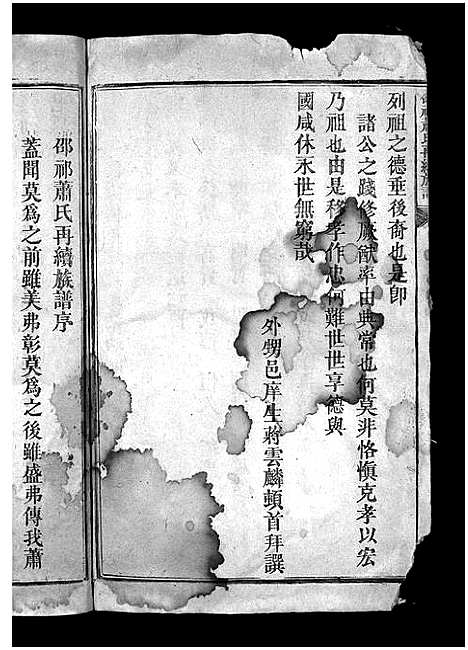 列祖之德垂後裔也是卽
諸公之踐修厥猷率由典常也何莫非恪愼克孝以宏
乃祖也由是移孝作忠何難世世享德與
國咸休永世無窮哉
外甥邑庠生蔣雲麟頓首拜譔
邵祁蕭氏再續族譜序
蓋聞莫爲之前雖美弗彰莫爲之後雖盛弗傳我蕭